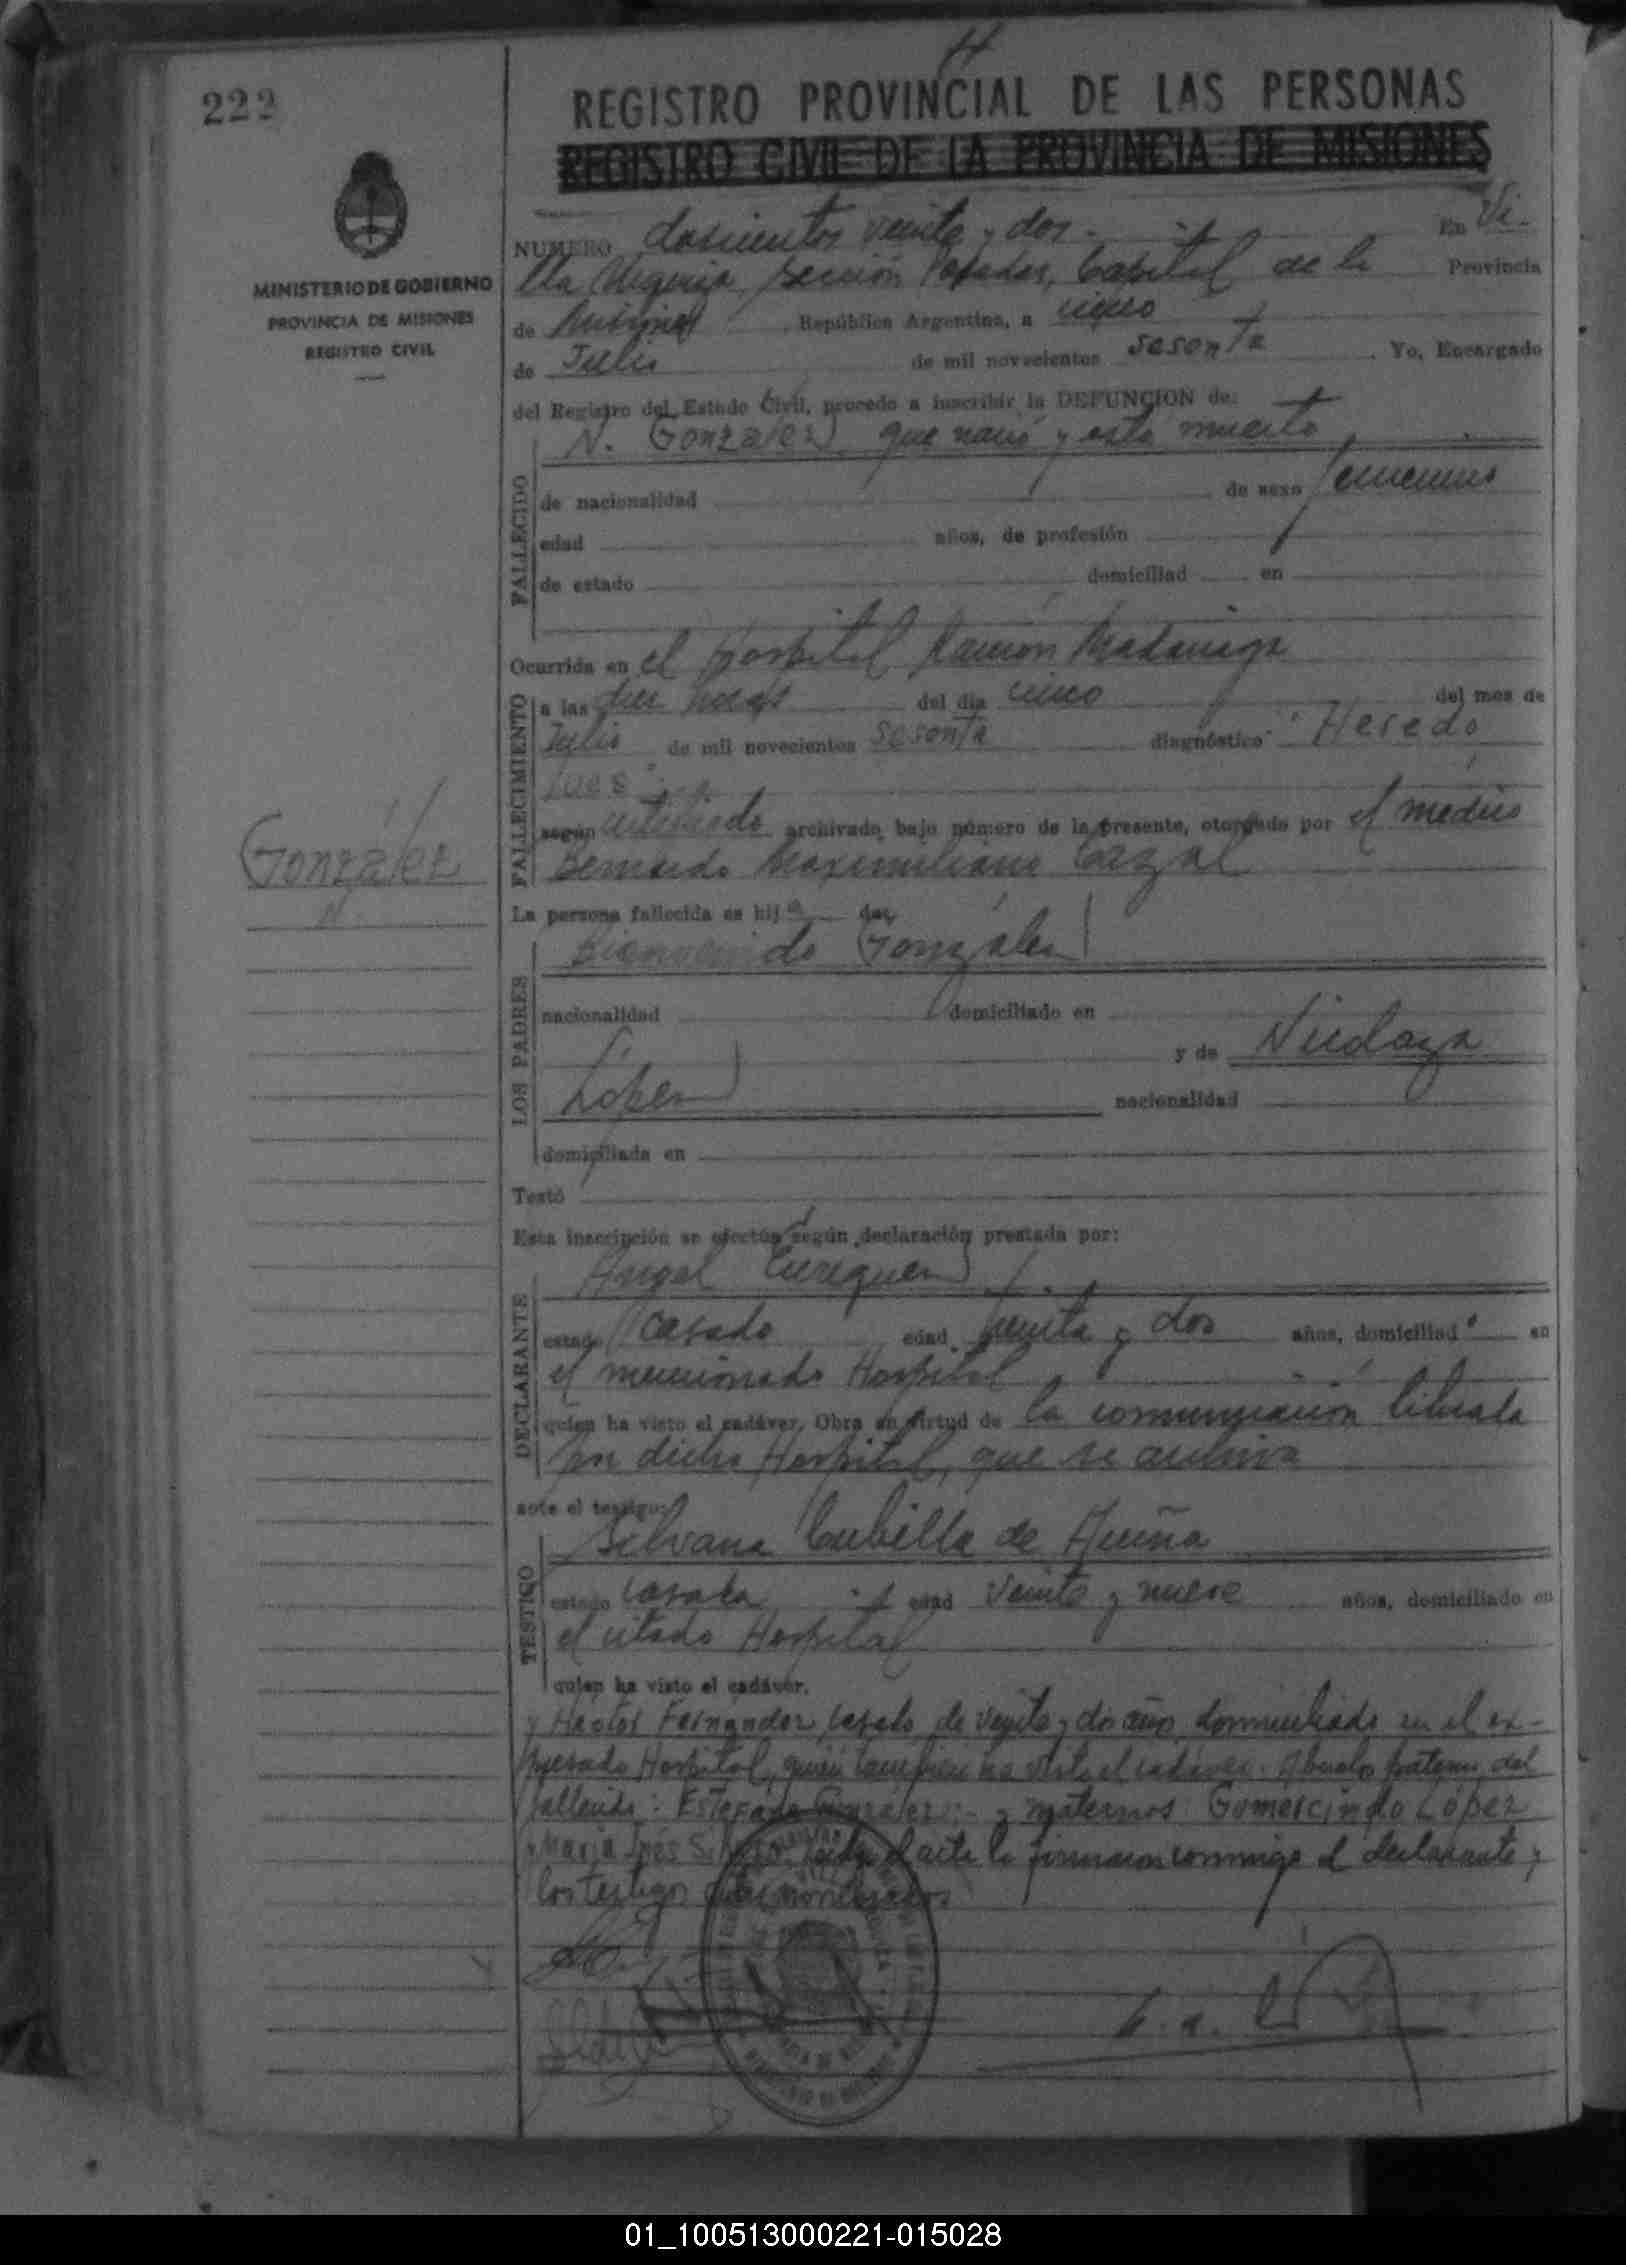 222
REGISTRO PROVINCIAL DE LAS PERSONAS
REGISTRO CIVIL DE LA PROVINCIA DE MISIONES
MINISTERIO DE GOBIERNO
PROVINCIA DE MISIONES
REGISTRO CIVIL
NUMERO doscientos veinte y dos.- En Vi-
lla Urquiza, sección Posadas, Capital de la Provincia
de Misiones República Argentina, a cinco
de Julio de mil novecientos sesenta. Yo, Encargado
del Registro del Estado Civil, procedo a inscribir la DEFUNCION de:
N. González que nació y está muerto
FALLECIDO
de nacionalidad de sexo femenino
edad años, de profesión
de estado domiciliad en
Ocurrida en el Hospital Ramón Madariaga
FALLECIMIENTO
a las diez horas del día cinco del mes de
Julio de mil novecientos sesenta diagnóstico "Heredo
Lues"
según certificado archivado bajo número de la presente, otorgado por el médico
Bernardo Maximiliano Cazal
González
N.
La persona fallecida es hija de:
LOS PADRES
Bienvenido González
nacionalidad domiciliado en
y de Nicolaza
López nacionalidad
domiciliada en
Testó
Esta inscripción se efectúa según declaración prestada por:
DECLARANTE
Angel
estado casado edad y dos años, domiciliado en
el mencionado Hospital
quien ha visto el cadáver. Obra en virtud de la comunicación librada
por dicho Hospital, que se archiva
ante el testigo:
TESTIGO
Silvana Cubilla de
estado casada edad veinte y nueve años, domiciliado en
el citado Hospital
quien ha visto el cadáver.
y Hector Fernandez, casado, de veinte y dos años, domiciliado en el ex-
presado Hospital, quien tambien ha visto el cadáver. Abuelos paternos del
fallecido: González.- y maternos: Gumercindo López
y María Inés leída el acta la firmaron conmigo el declarante y
los testigos
01_100513000221-015028